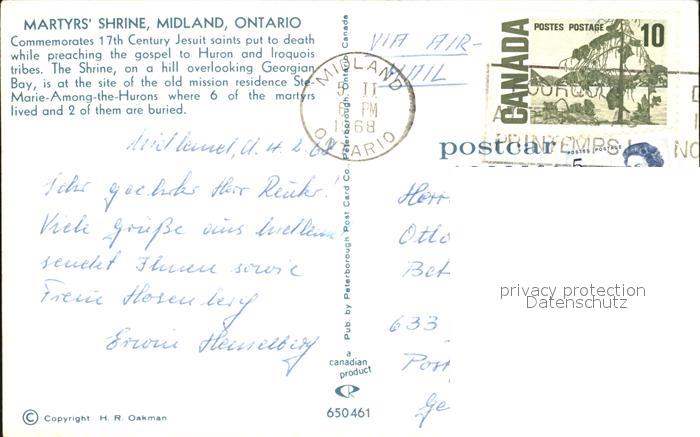 MARTYRS' SHRINE, MIDLAND, ONTARIO
Commemorates 17th Century Jesuit saints put to death
while preaching the gospel to Huron and Iroquois
tribes. The Shrine, on a hill overlooking Georgian
Bay, is at the site of the old mission residence Ste-
Marie-Among-the-Hurons where 6 of the martyrs
lived and 2 of them are buried.
VIA AIR-
MAIL
MIDLAND
II
PM
1968
ONTARIO
CANADA
POSTES POSTAGE
10
PRINTEMPS
NO
postcar
POSTES POSTAGE
5
Midland, d. 4.2.68
Sehr geehrter Herr
Viele Grüße aus Midland
sendet Ihnen sowie
Erwin
Otto
Bet
633
Post
Ge
privacy protection
Datenschutz
Pub. by Peterborough Post Card Co. Peterborough, Ontario, Canada
a
canadian
product
650461
© Copyright H. R. Oakman